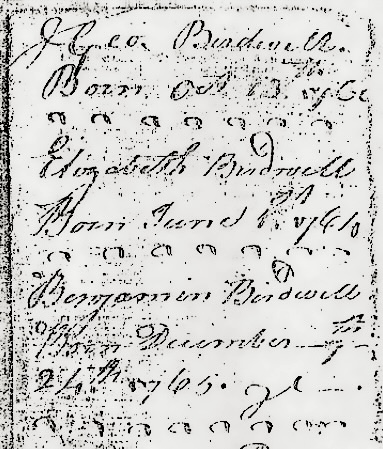 Geo. Birdwell.
Born Oct 13th
Elizabeth Birdwell
Born June 1st
Benjamin Birdwell
Born December
24th 1765.